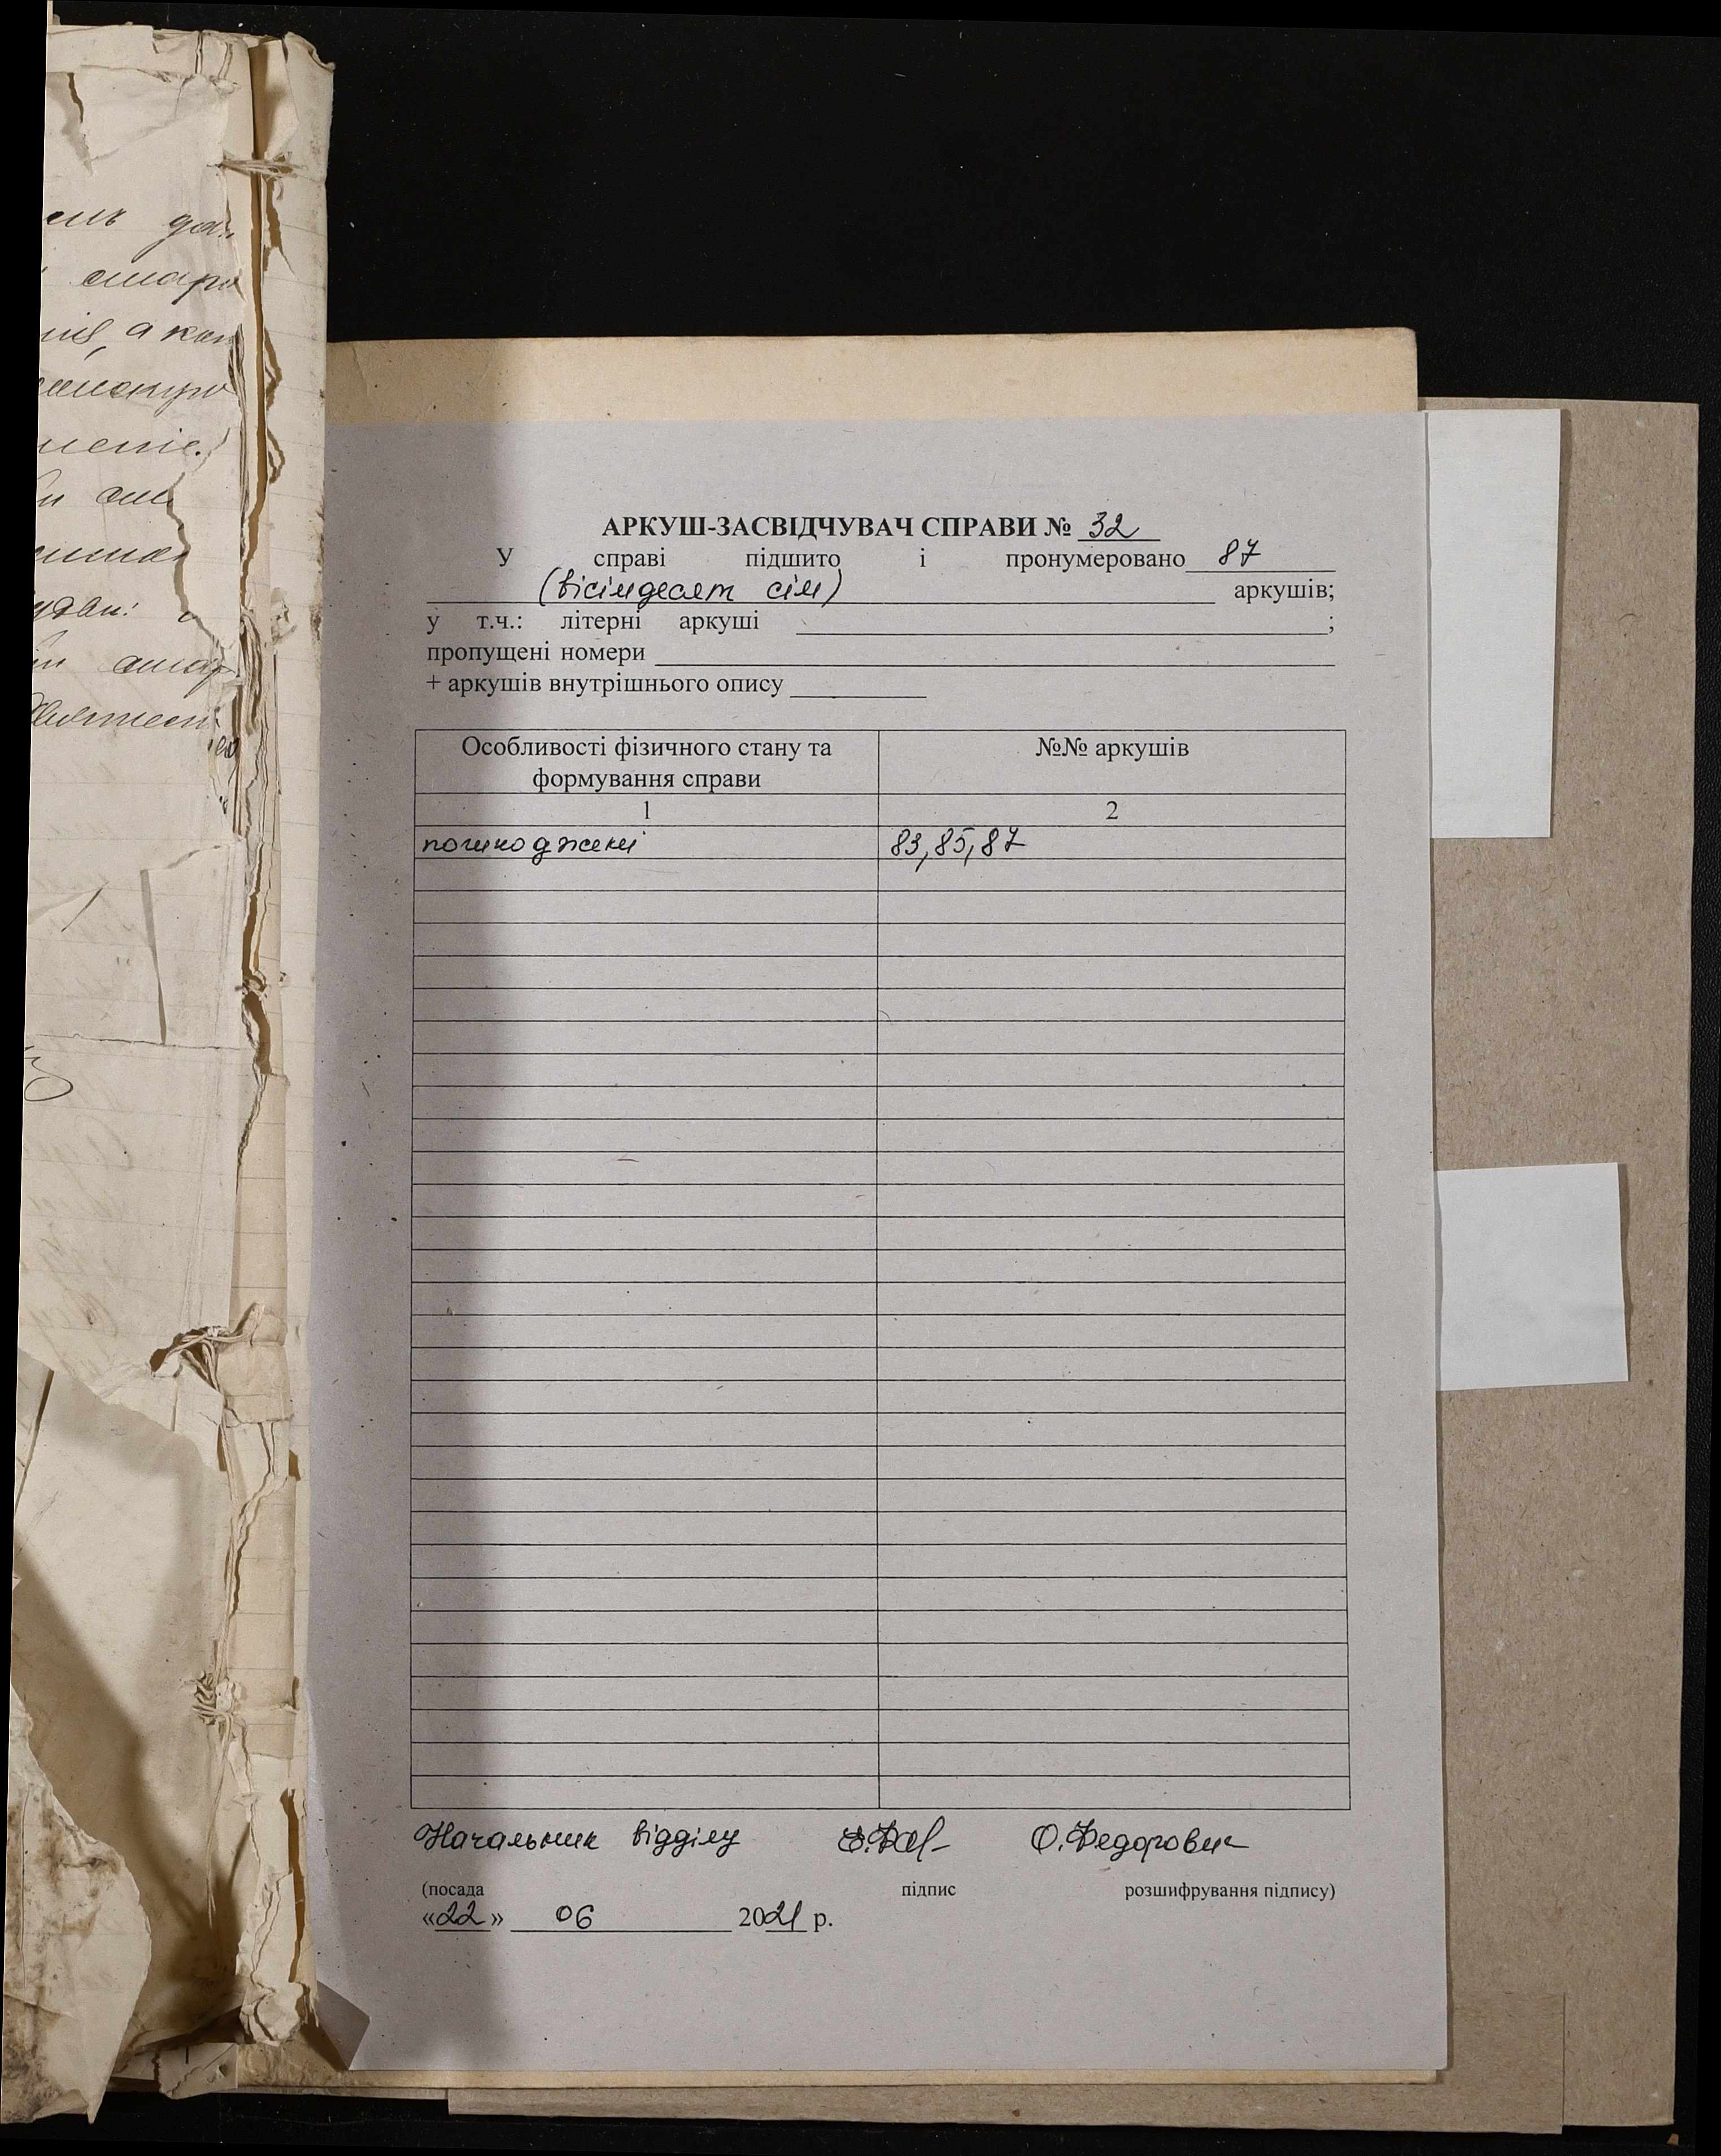 АРКУШ-ЗАСВІДЧУВАЧ СПРАВИ № 32
У справі підшито і пронумеровано 87
(вісімдесят сім) аркушів;
у т.ч.: літерні аркуші ;
пропущені номери
+ аркушів внутрішнього опису
Особливості фізичного стану та формування справи
№№ аркушів
1 2
пошкоджені 83,85,87
Начальник відділу О.Федорович
(посада підпис розшифрування підпису)
«22» 06 2021 р.